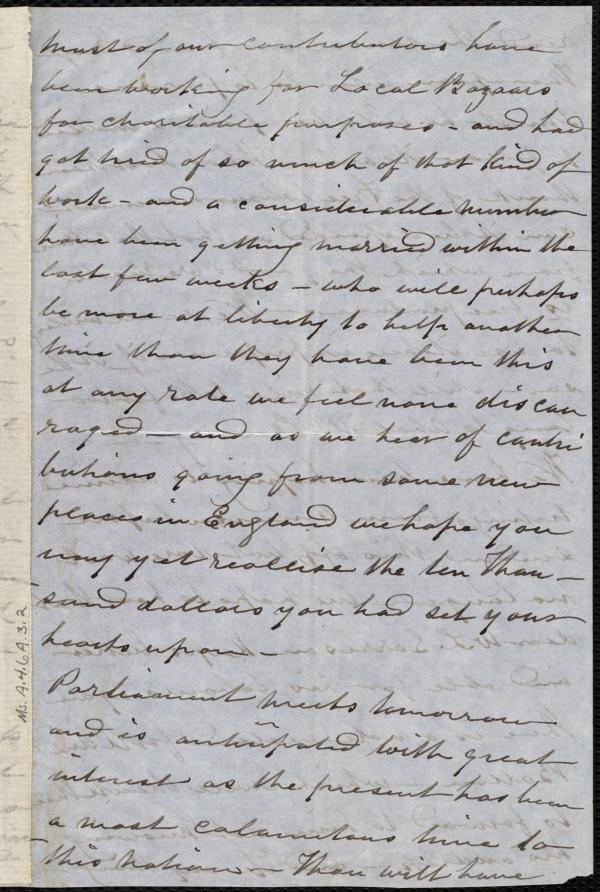 most of our contributors have
been working for Local Bazaars
for charitable purposes - and had
got tired of so much of that kind of
work - and a considerable number
have been getting married within the
last few weeks - who will perhaps
be more at liberty to help another
time than they have been this
at any rate we feel none discou
raged - and as we hear of contri
butions going from some new
places in England we hope you
may yet reallise the ten Thou-
sand dollars you had set your
hearts upon -
Parliament meets tomorrow
and is anticipated with great
interest as the present has been
a most calamitous time to
this Nation - Thou will have
Ms. A.4.6A.3.2